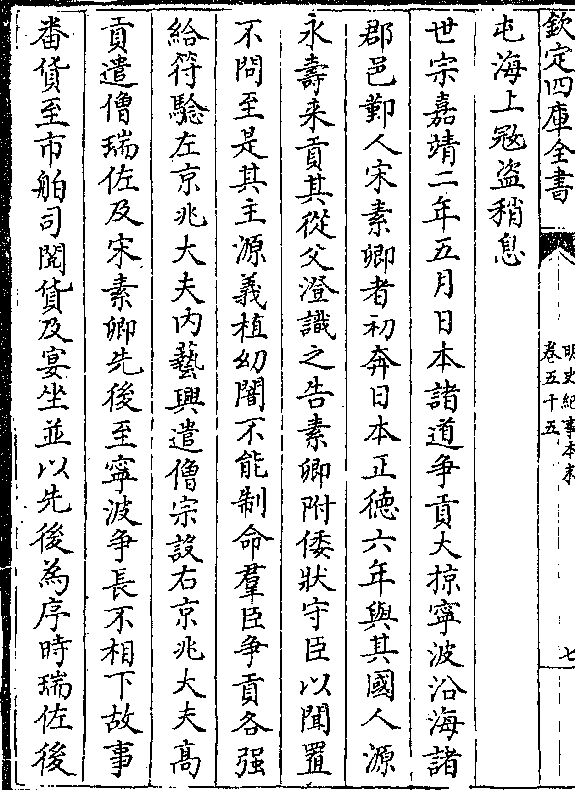 欽定四庫全書
明史紀事本末
卷五十五
七
屯海上冦盗稍息
世宗嘉靖二年五月日本諸道争貢大掠寧波沿海諸
郡邑鄞人宋素卿者初奔日本正德六年與其國人源
永壽来貢其從父澄識之告素卿附倭狀守臣以聞置
不問至是其主源義植幼闇不能制命羣臣争貢各强
給符騐左京兆大夫内藝興遣僧宗設右京兆大夫高
貢遣僧瑞佐及宋素卿先後至寧波争長不相下故事
番貨至市舶司閱貨及宴坐並以先後為序時瑞佐後